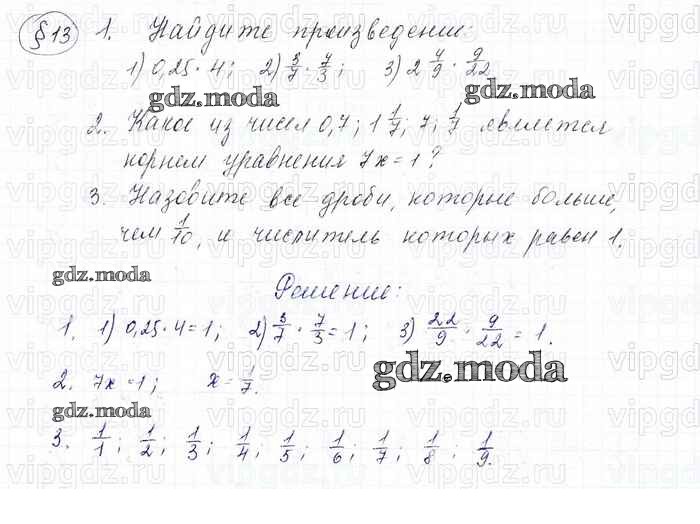 §13 1. Найдите произведение:
1) 0,25 · 4; 2) 3/7 · 7/3; 3) 2 4/9 · 9/22
gdz.moda gdz.moda
2. Какое из чисел 0,7; 1 1/7; 7; 1/7 является
корнем уравнения 7x=1?
3. Назовите все дроби, которые больше,
чем 1/10, и числитель которых равен 1.
gdz.moda
Решение:
1. 1) 0,25·4=1; 2) 3/7 · 7/3 = 1; 3) 22/9 · 9/22 = 1.
gdz.moda
2. 7x=1; x=1/7.
gdz.moda
3. 1/1; 1/2; 1/3; 1/4; 1/5; 1/6; 1/7; 1/8; 1/9.